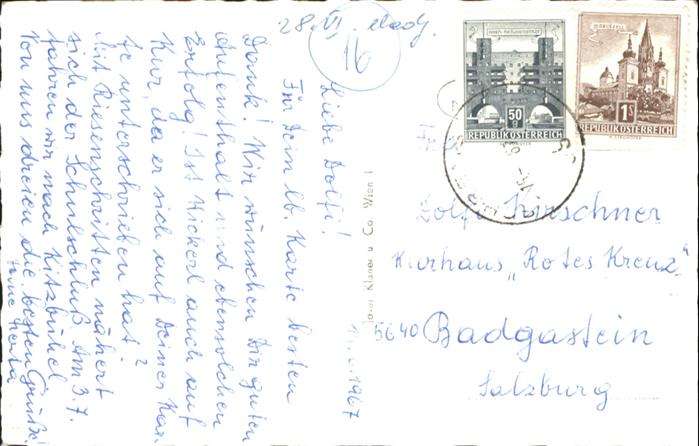 28. VI. nach.
16
Liebe Dolfi!
Für Dein lb. Karte besten
Dank! Wir wünschen Dir guten
Aufenthalt und ebensolchen
Erfolg! Ist Nickerl auch auf
Kur, da er sich auf Deiner Kar
te unterschrieben hat?
Mit Riesenschritten nähert
sich der Schulschluß. Am 3.7.
fahren wir nach Kitzbühel
Von uns dreien die besten Grüße!
Herta
50
g
REPUBLIK ÖSTERREICH
MARIAZELL
1S
REPUBLIK ÖSTERREICH
u. Co. Wien I
1967
Dolfi Kirschner
Kurhaus „Rotes Kreuz"
5640 Badgastein
Salzburg